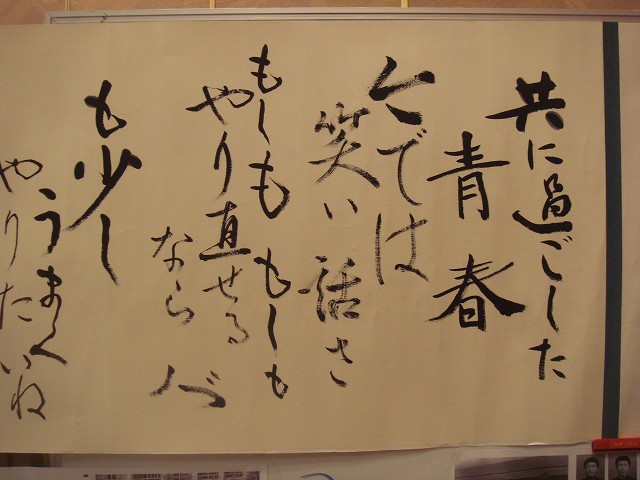 共に過ごした
青春
今では
笑い話さ
もしも もしも
やり直せる
なら ば
も少し
うまく
やりたいね